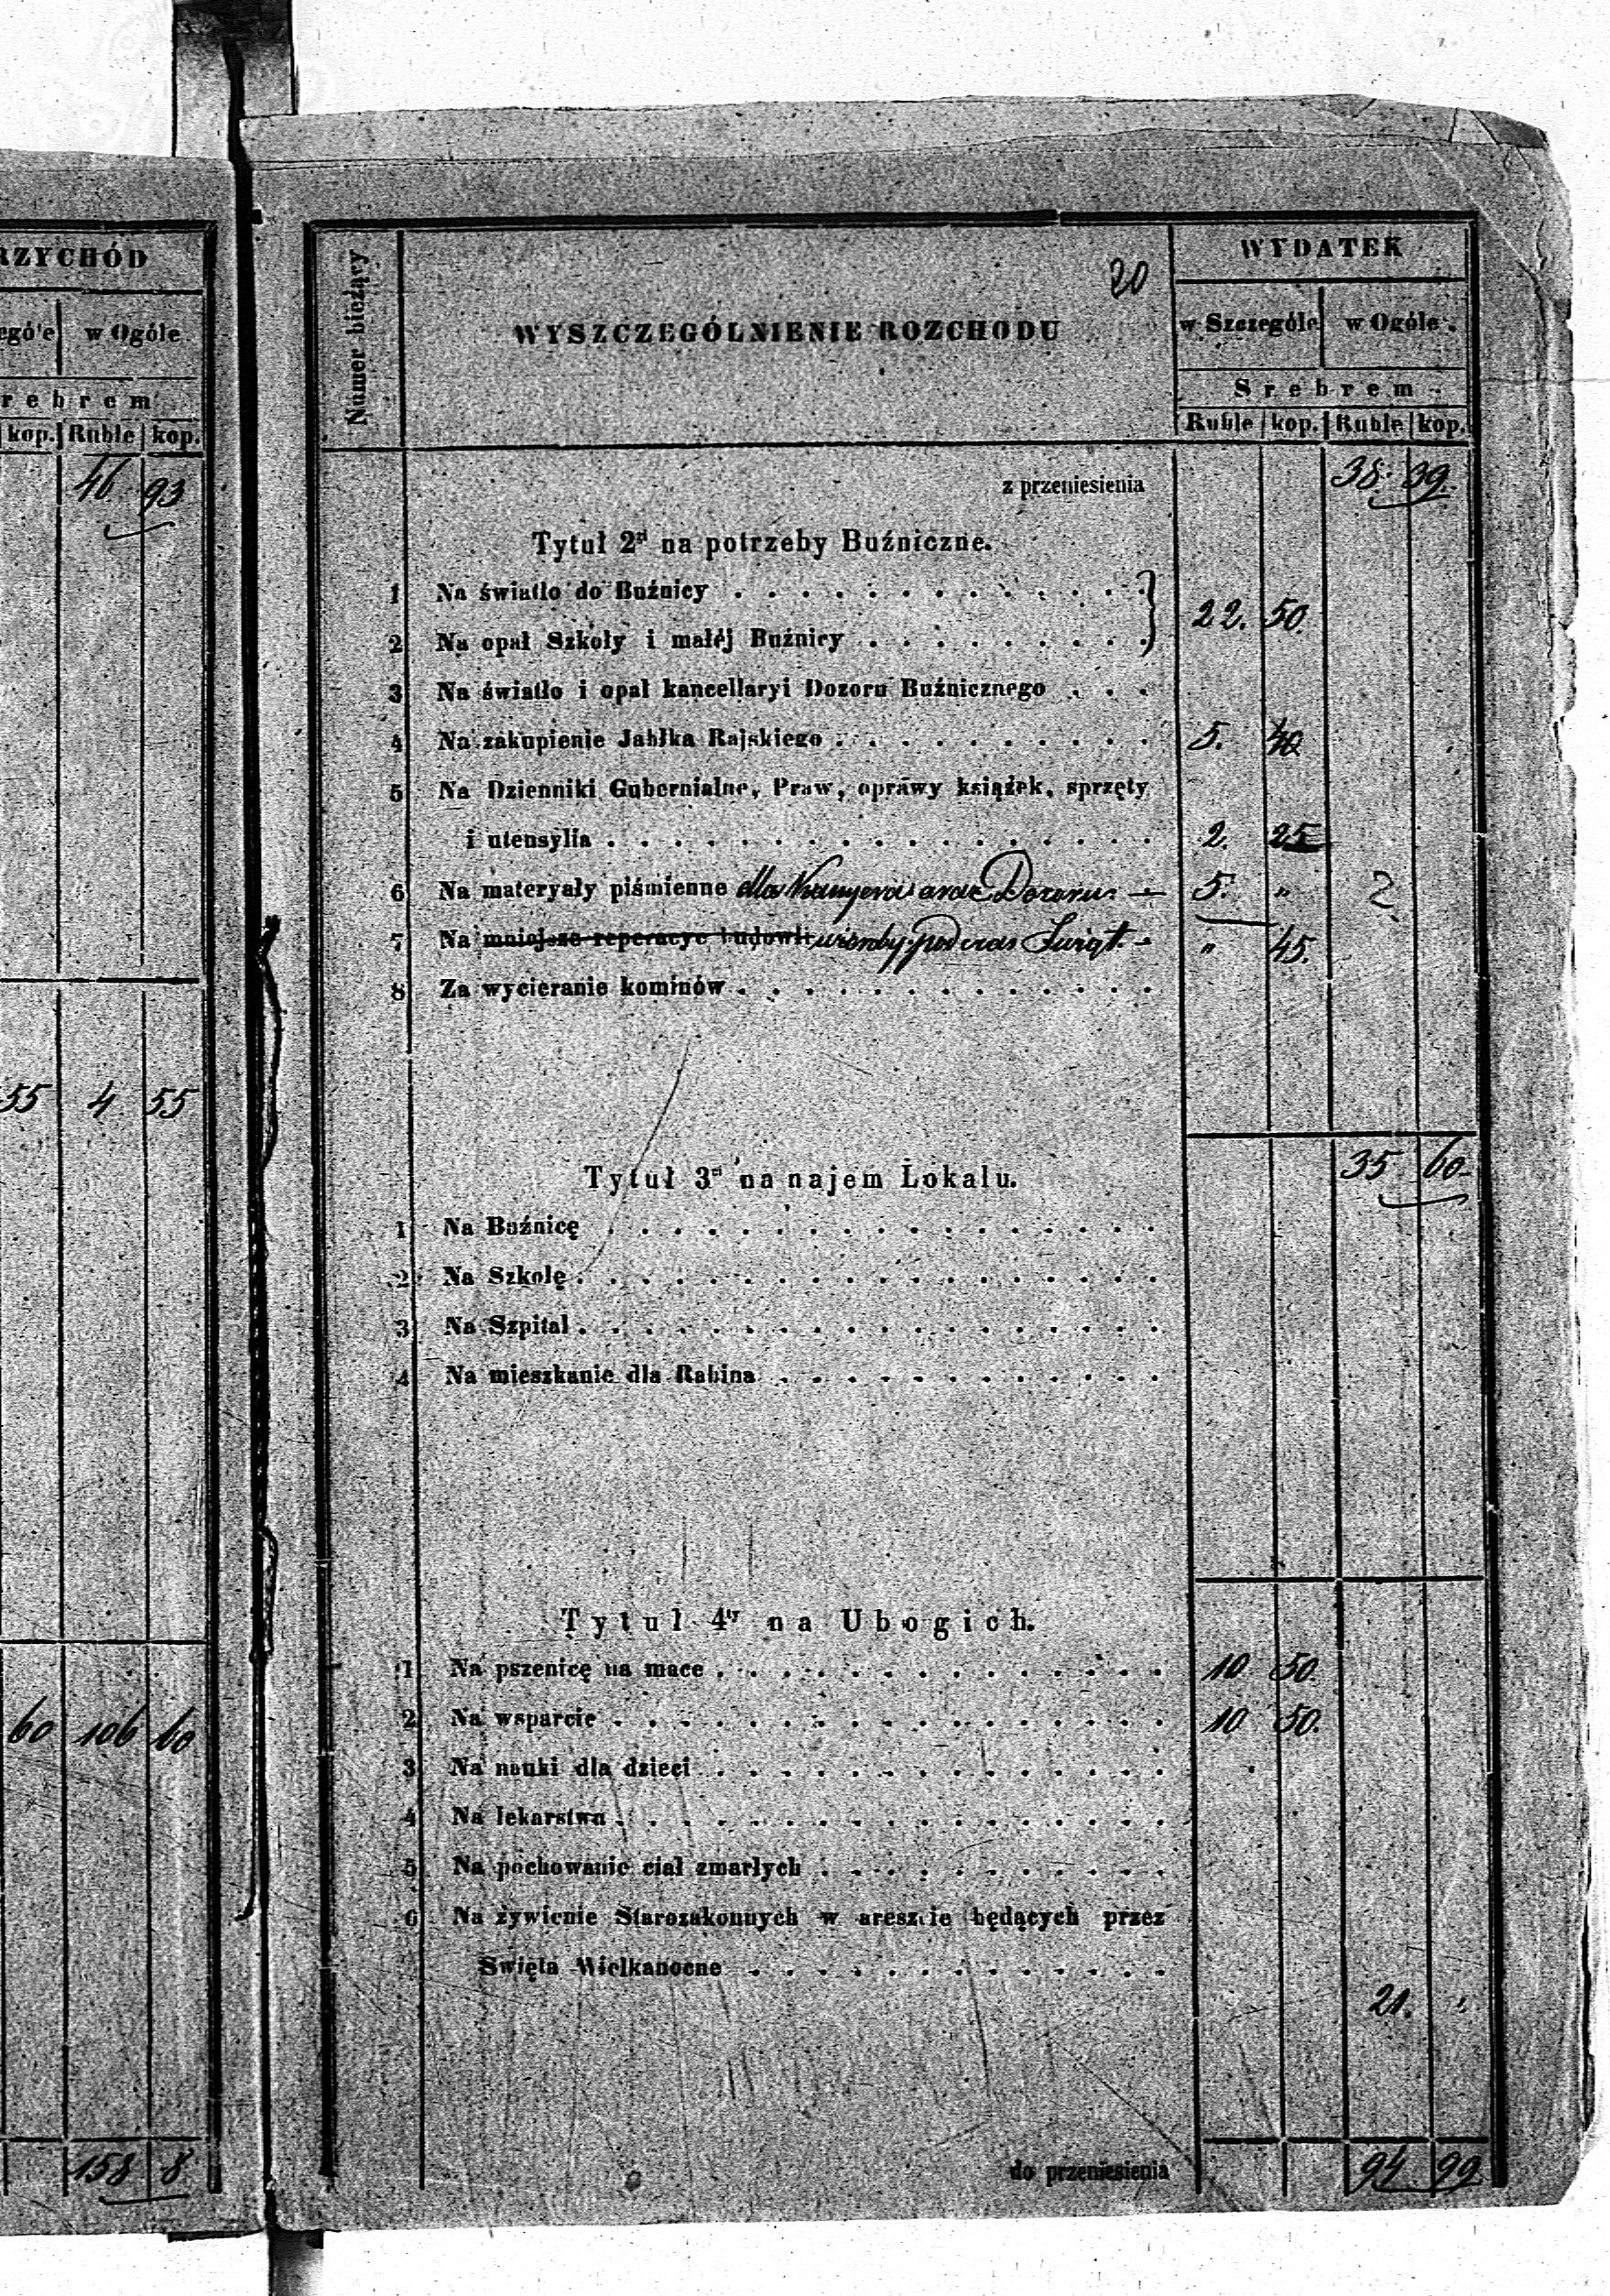 RZYCHÓD
w Ogóle
r e b r e m
kop. Ruble kop.
46 93
55 4 55
60 106 60
158 8
20
Numer bieżący
WYSZCZEGÓLNIENIE ROZCHODU
WYDATEK
w Szczególe w Ogóle
S r e b r e m
Ruble kop. Ruble kop.
z przeniesienia 38. 39.
Tytuł 2gi na potrzeby Buźniczne.
1 Na światło do Buźnicy . . . . . . . . . . . . . }
2 Na opał Szkoły i małéj Buźnicy . . . . . . . . . } 22. 50.
3 Na światło i opał kancellaryi Dozoru Buźnicznego . . .
4 Na zakupienie Jabłka Rajskiego . . . . . . . . . . 5. 40
5 Na Dzienniki Gubernialne, Praw, oprawy książek, sprzęty
i utensylia . . . . . . . . . . . . . . . . . 2. 25
6 Na materyały piśmienne dla oraz Dozoru — 5. „ 2
7 Na mniejsze reperacye budowli podczas Świąt. - „ 45.
8 Za wycieranie kominów . . . . . . . . . . . . .
35 60
Tytuł 3ci na najem Lokalu.
1 Na Buźnicę . . . . . . . . . . . . . . . . .
2 Na Szkołę . . . . . . . . . . . . . . . . . .
3 Na Szpital . . . . . . . . . . . . . . . . . .
4 Na mieszkanie dla Rabina . . . . . . . . . . . .
Tytuł 4ty na Ubogich.
1 Na pszenicę na mace . . . . . . . . . . . . . . 10 50.
2 Na wsparcie . . . . . . . . . . . . . . . . . 10 50.
3 Na nauki dla dzieci . . . . . . . . . . . . . .
4 Na lekarstwa . . . . . . . . . . . . . . . . .
5 Na pochowanie ciał zmarłych . . . . . . . . . . .
6 Na żywienie Starozakonnych w areszcie będących przez
Święta Wielkanocne . . . . . . . . . . . . .
21. „
do przeniesienia 94 99